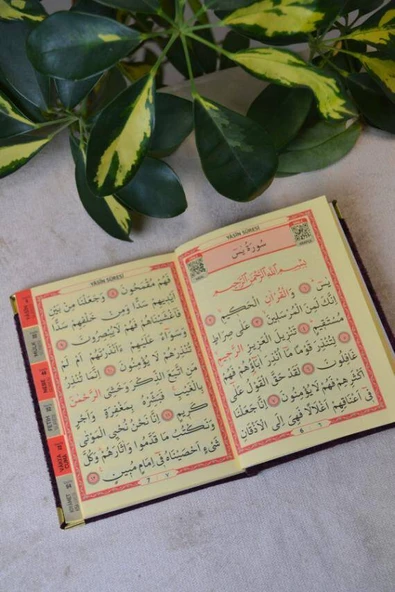 YÂSİN SÛRESİ
سُورَةُ يٰسٓ
بِسْمِ اللهِ الرَّحْمٰنِ الرَّحِيمِ
يٰسٓ ١ وَالْقُرْاٰنِ الْحَكِيمِ ٢
اِنَّكَ لَمِنَ الْمُرْسَلِينَ ٣ عَلٰى صِرَاطٍ
مُسْتَقِيمٍ ٤ تَنْزِيلَ الْعَزِيزِ الرَّحِيمِ ٥
لِتُنْذِرَ قَوْمًا مَٓا اُنْذِرَ اٰبَٓاؤُ۬هُمْ فَهُمْ
غَافِلُونَ ٦ لَقَدْ حَقَّ الْقَوْلُ عَلٰٓى
اَكْثَرِهِمْ فَهُمْ لَا يُؤْمِنُونَ ٧ اِنَّا جَعَلْنَا
فِٓي اَعْنَاقِهِمْ اَغْلَالًا فَهِيَ اِلَى الْاَذْقَانِ
6 ٦
YÂSİN SÛRESİ
فَهُمْ مُقْمَحُونَ ٨ وَجَعَلْنَا مِنْ بَيْنِ
اَيْدِيهِمْ سَدًّا وَمِنْ خَلْفِهِمْ سَدًّا
فَاَغْشَيْنَاهُمْ فَهُمْ لَا يُبْصِرُونَ ٩
وَسَوَٓاءٌ عَلَيْهِمْ ءَاَنْذَرْتَهُمْ اَمْ لَمْ
تُنْذِرْهُمْ لَا يُؤْمِنُونَ ١٠ اِنَّمَا تُنْذِرُ
مَنِ اتَّبَعَ الذِّكْرَ وَخَشِيَ الرَّحْمٰنَ
بِالْغَيْبِ فَبَشِّرْهُ بِمَغْفِرَةٍ وَاَجْرٍ
كَرِيمٍ ١١ اِنَّا نَحْنُ نُحْيِ الْمَوْتٰى
وَنَكْتُبُ مَا قَدَّمُوا وَاٰثَارَهُمْ وَكُلَّ
شَيْءٍ اَحْصَيْنَاهُ فِٓي اِمَامٍ مُبِينٍ ١٢
7 ٧
YASİN
MÜLK
NEBE
FETİH
VAKIA
CUMA